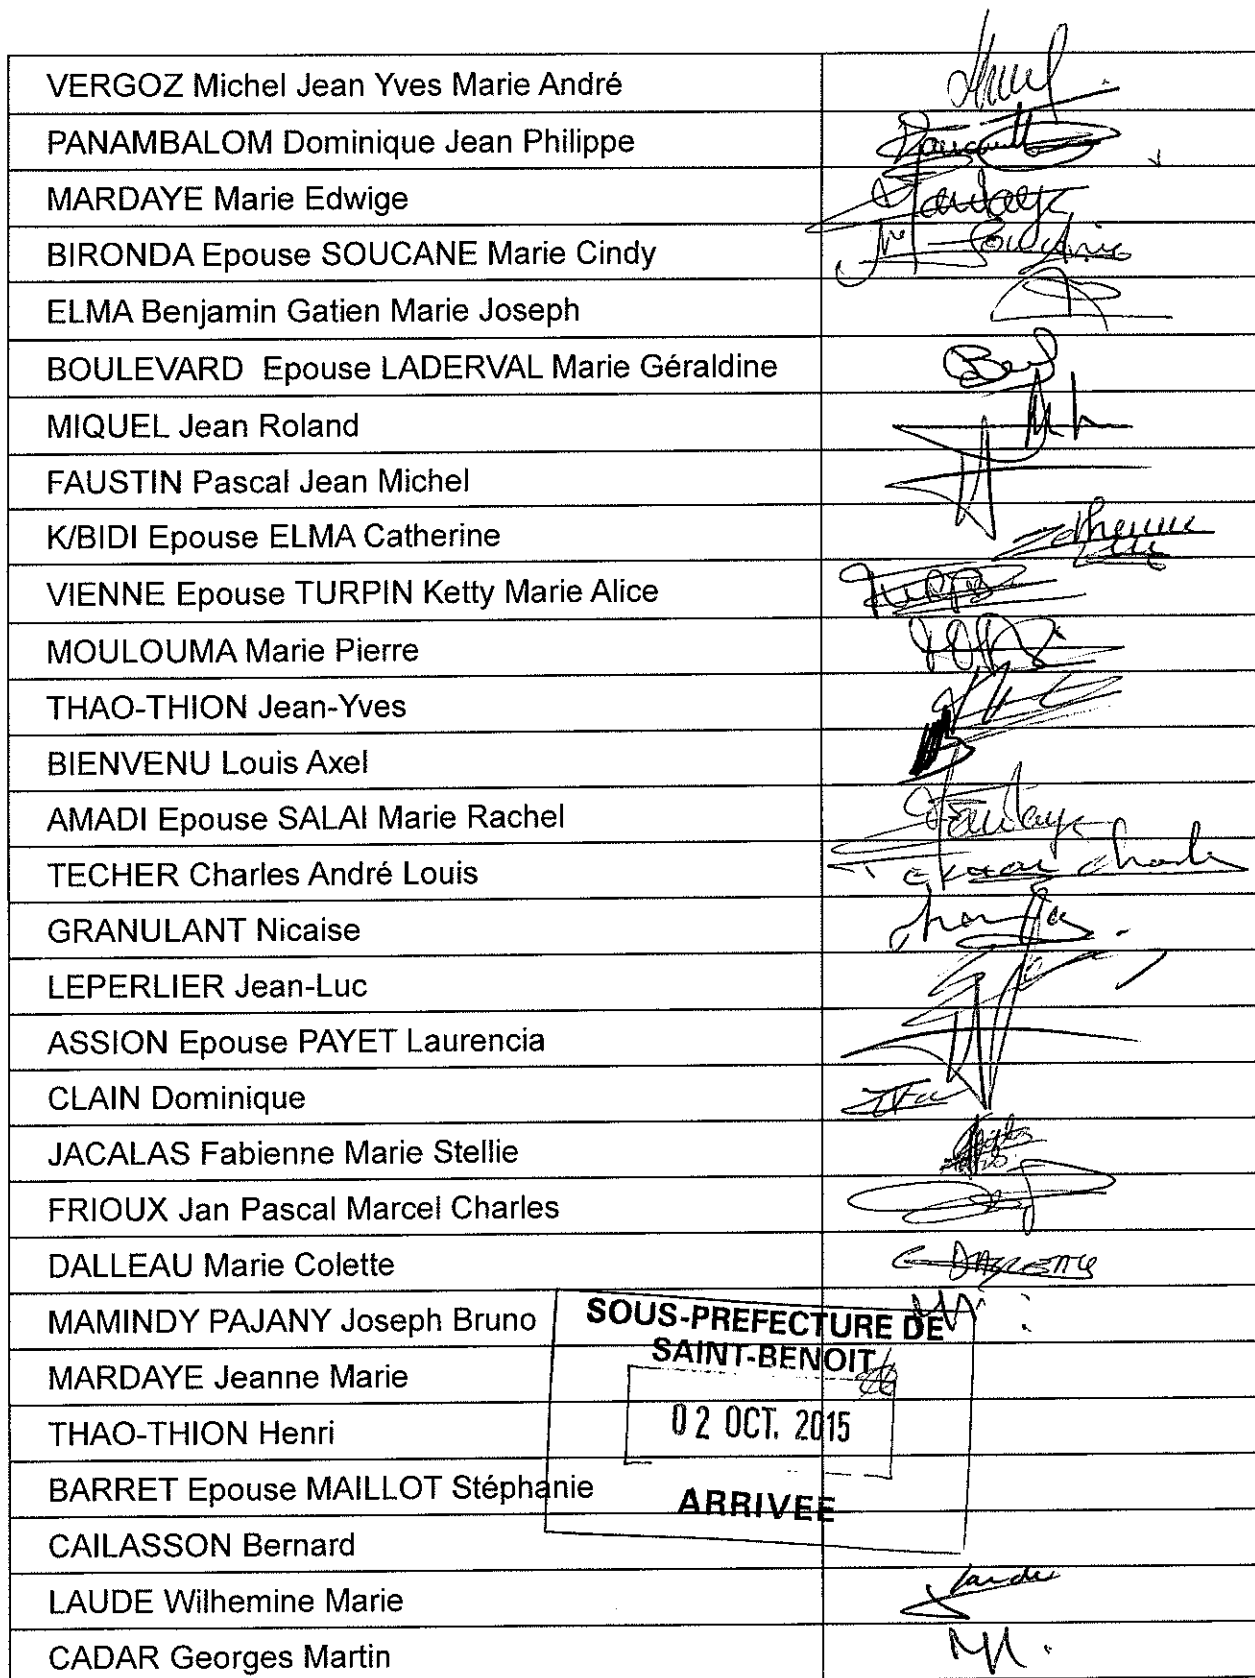 VERGOZ Michel Jean Yves Marie André
PANAMBALOM Dominique Jean Philippe
MARDAYE Marie Edwige
BIRONDA Epouse SOUCANE Marie Cindy
ELMA Benjamin Gatien Marie Joseph
BOULEVARD Epouse LADERVAL Marie Géraldine
MIQUEL Jean Roland
FAUSTIN Pascal Jean Michel
K/BIDI Epouse ELMA Catherine
VIENNE Epouse TURPIN Ketty Marie Alice
MOULOUMA Marie Pierre
THAO-THION Jean-Yves
BIENVENU Louis Axel
AMADI Epouse SALAI Marie Rachel
TECHER Charles André Louis
GRANULANT Nicaise
LEPERLIER Jean-Luc
ASSION Epouse PAYET Laurencia
CLAIN Dominique
JACALAS Fabienne Marie Stellie
FRIOUX Jan Pascal Marcel Charles
DALLEAU Marie Colette
MAMINDY PAJANY Joseph Bruno
MARDAYE Jeanne Marie
THAO-THION Henri
BARRET Epouse MAILLOT Stéphanie
CAILASSON Bernard
LAUDE Wilhemine Marie
CADAR Georges Martin
SOUS-PREFECTURE DE
SAINT-BENOIT
02 OCT. 2015
ARRIVEE